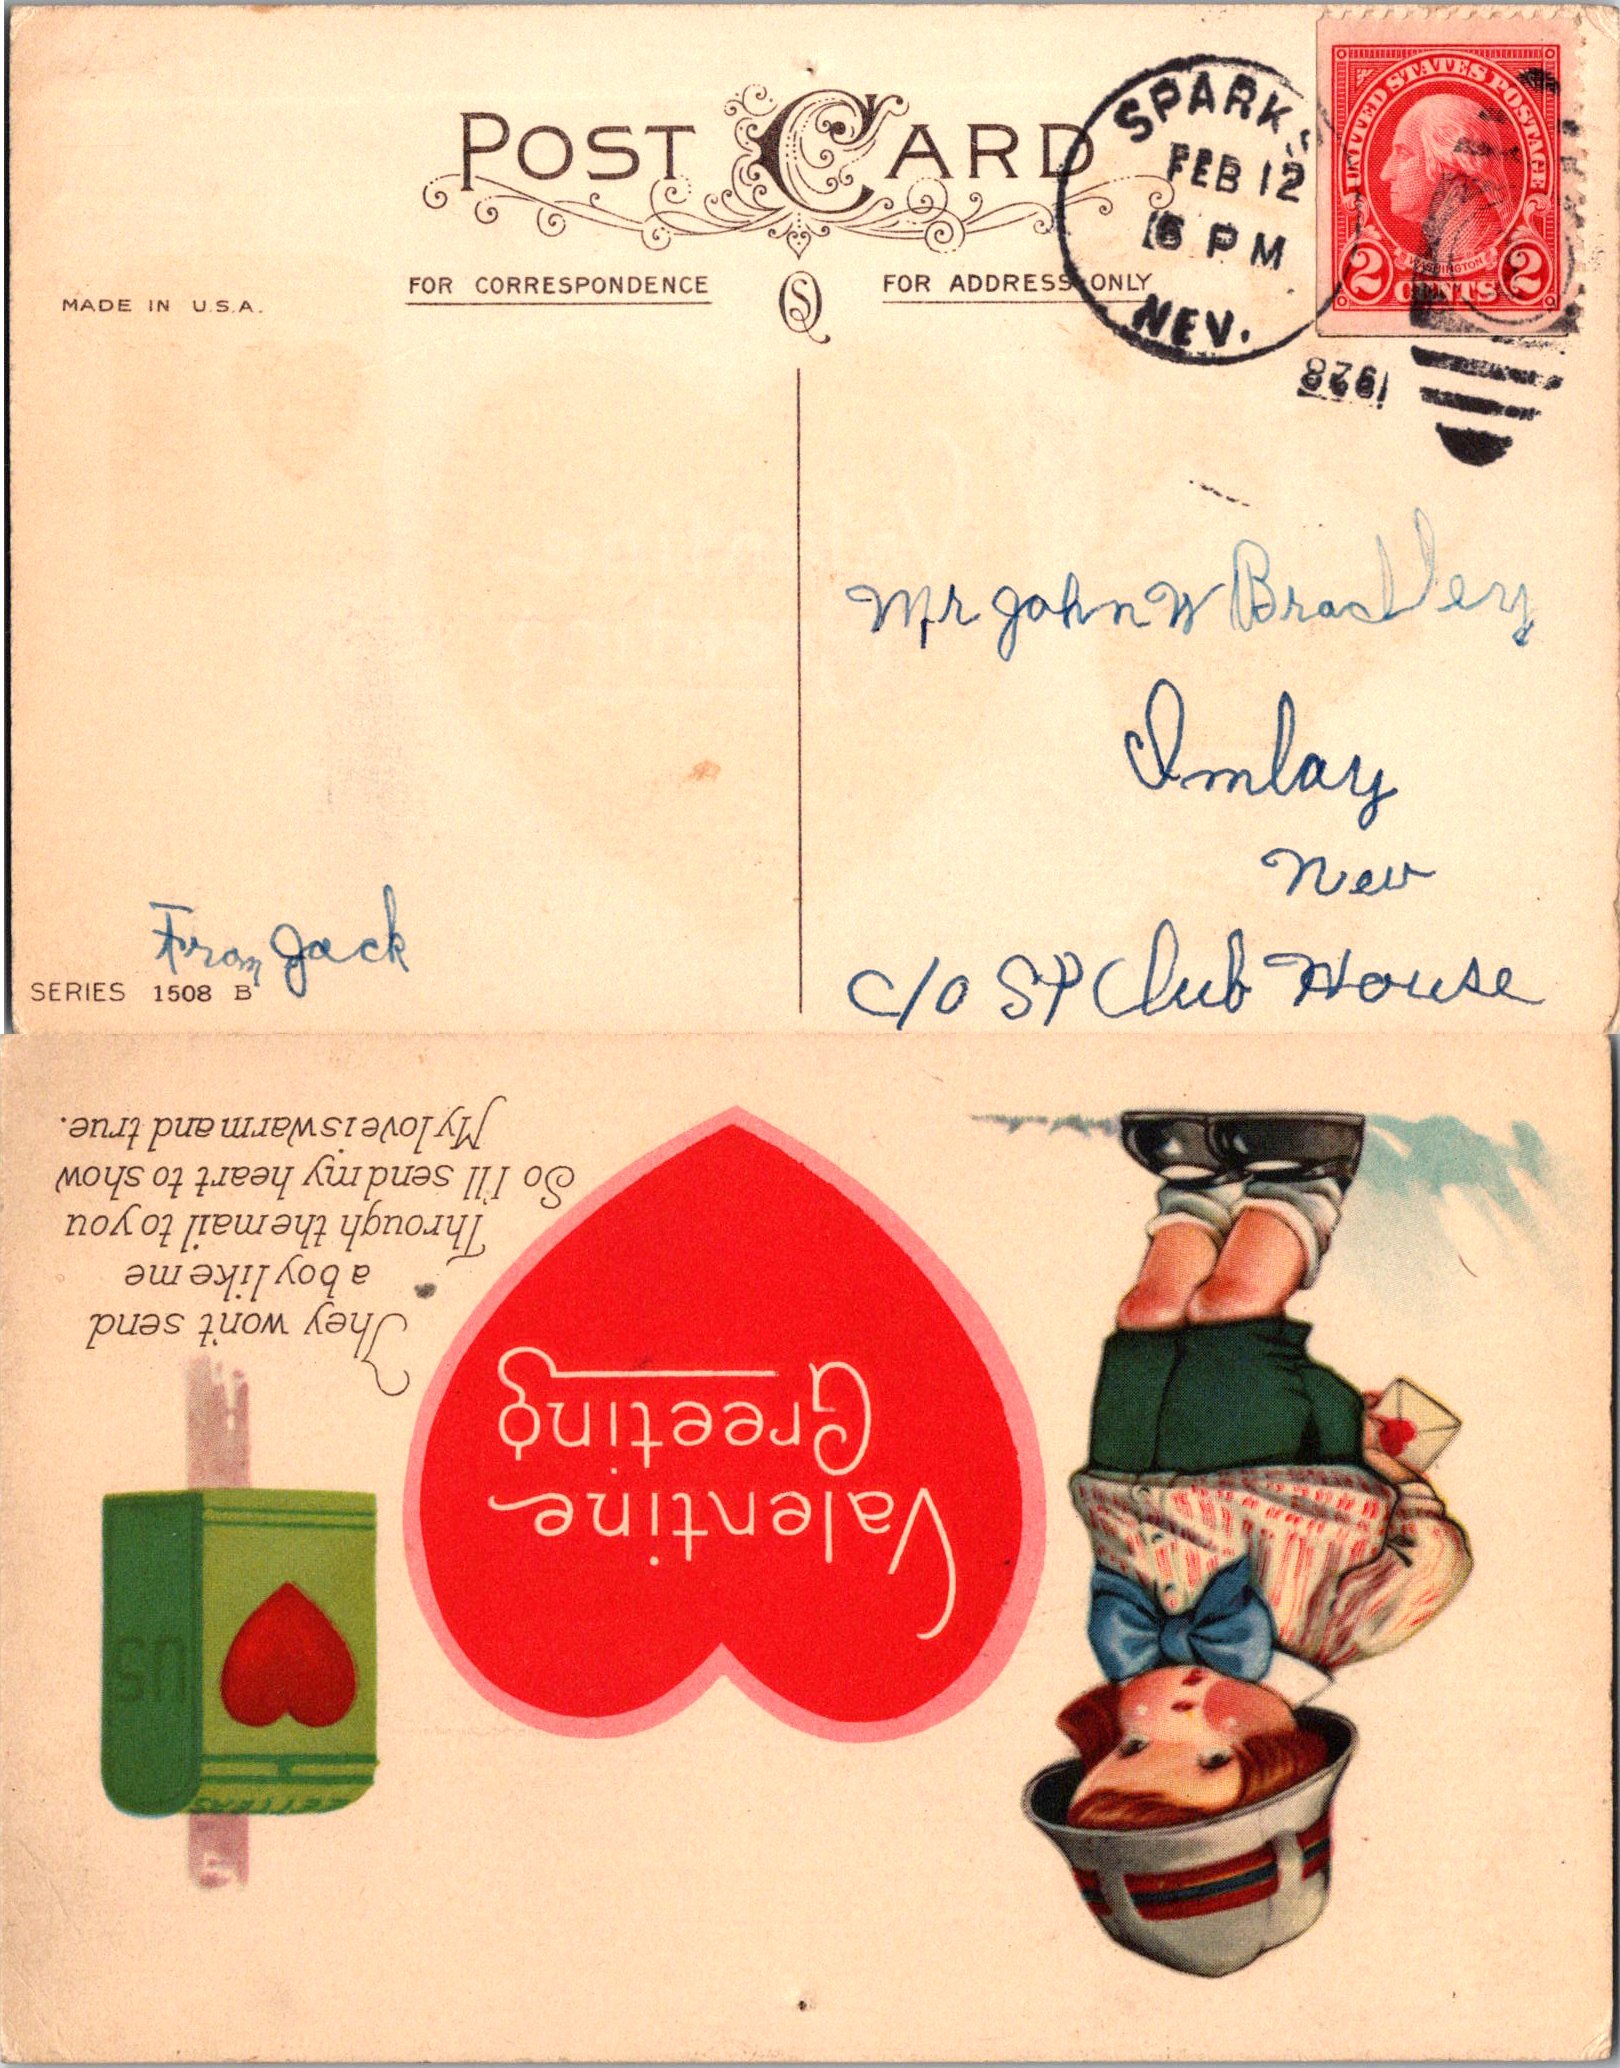 POST CARD
SPARKS
FEB 12
6 PM
NEV.
1928
UNITED STATES POSTAGE
WASHINGTON
2 CENTS 2
FOR CORRESPONDENCE
FOR ADDRESS ONLY
MADE IN U.S.A.
Mr John W Bradley
Imlay
Nev
c/o SP Club House
From Jack
SERIES 1508 B
Valentine
Greeting
US
LETTERS
They won't send
a boy like me
Through the mail to you
So I'll send my heart to show
My love is warm and true.